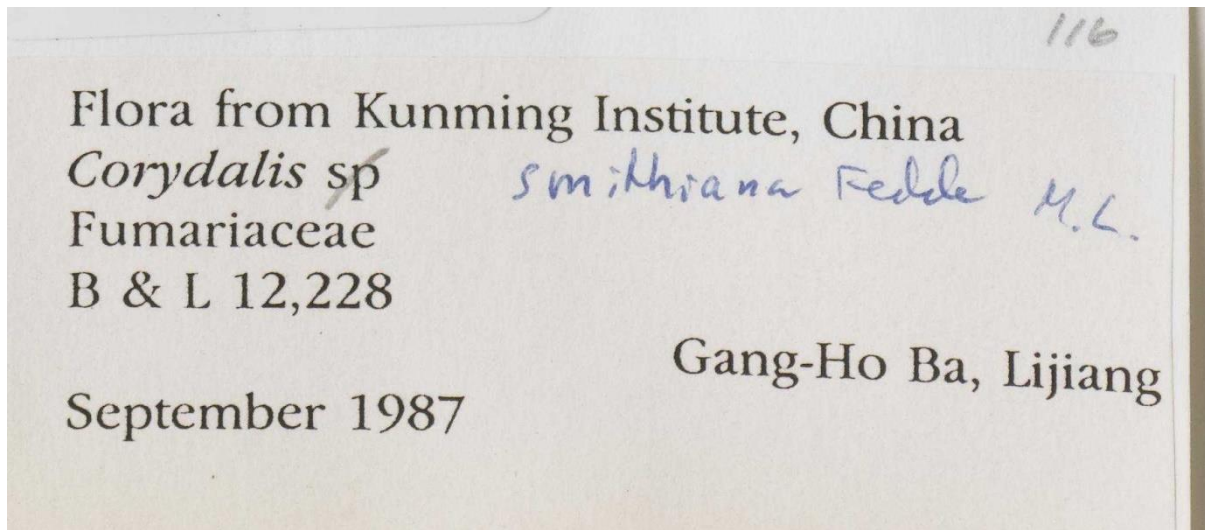 116
Flora from Kunming Institute, China
Corydalis sp smithiana Fedde M.L.
Fumariaceae
B & L 12,228
Gang-Ho Ba, Lijiang
September 1987